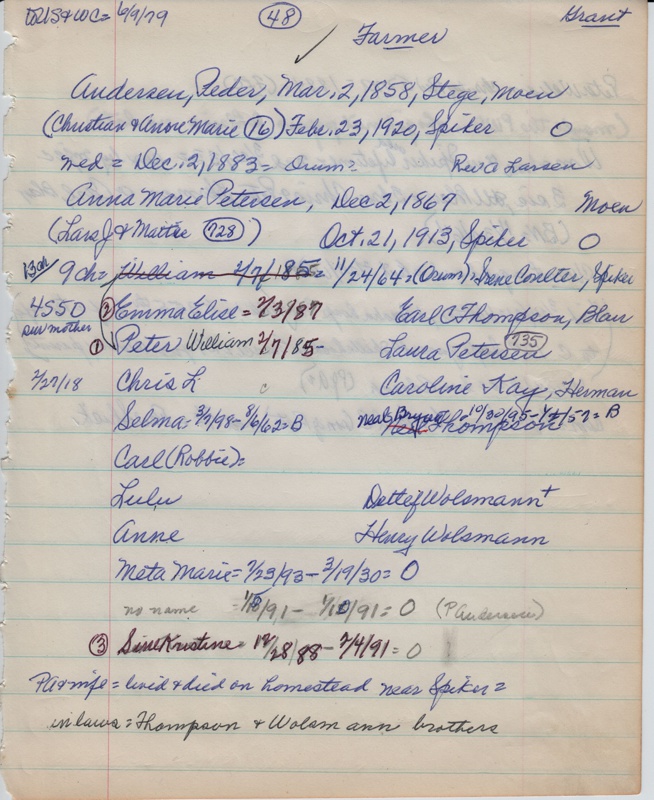 6/9/79 (48) Grant
Farmer
Andersen, Peder, Mar. 2, 1858, Stege, Moen
(Christian & Anne Marie (76)) Feb. 23, 1920, Spiker O
med = Dec. 2, 1883 = Orum = Rev A Larsen
Anna Marie Petersen, Dec 2, 1867 Moen
(Lars J & Maitre (728)) Oct. 21, 1913, Spiker O
13 ch 9 ch = William 2/7/185 = 11/24/64 = (Orum) = Irene Coulter, Spiker
4S5D (2) Emma Elise = 2/3/87 Earl C Thompson, Blair
sur mother
(1) Peter William 2/7/85 - Laura Petersen (735)
2/27/18 Chris L Caroline Kay, Herman
Selma = 3/7/98 - 8/6/62 = B neal Bryan Thompson 10/30/95 - = B
Carl (Robbie) =
Lulu Detlef Wolsmann +
Anne Henry Wolsmann
Meta Marie = 7/23/93 - 3/19/30 = O
no name /91 - /91 = O (P Andersen)
(3) Sine Kristine /28/88 - 2/4/91 = O
Pa & wife = livid & died on homestead near Spiker =
in laws = Thompson & Wolsmann brothers